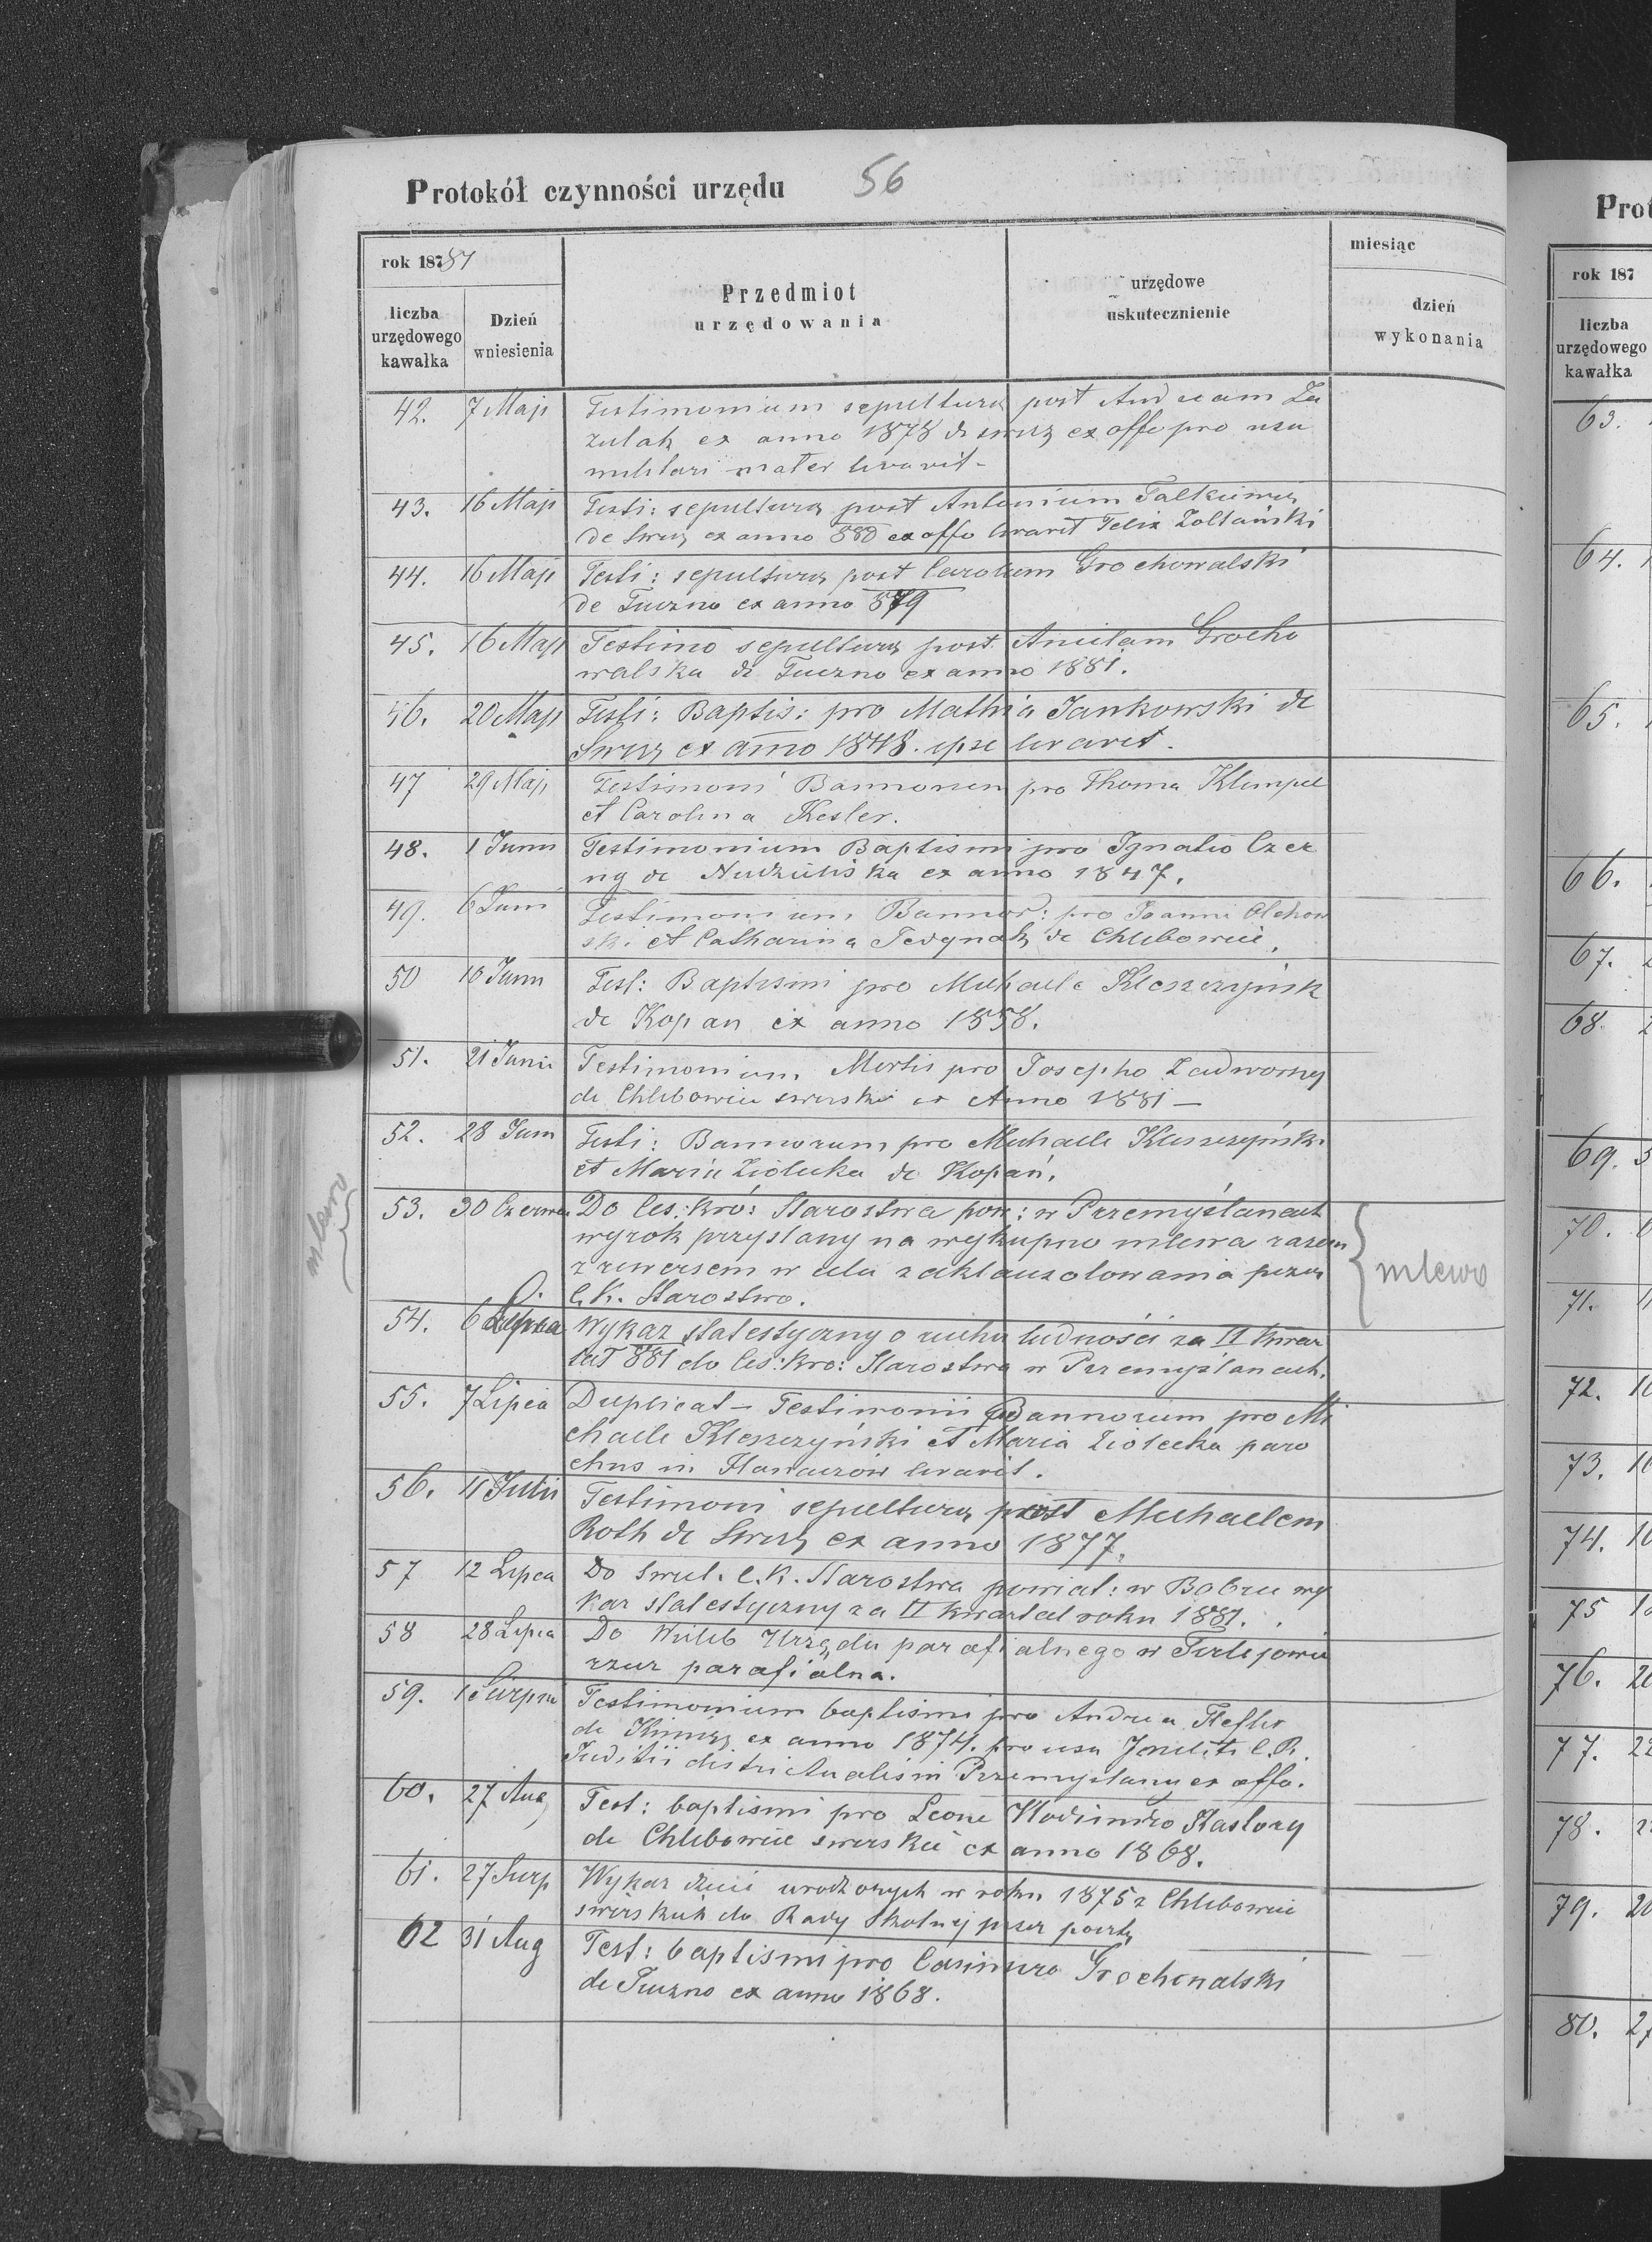 Protokół czynności urzędu 56
rok 187 81
liczba
urzędowego
kawałka
Dzień
wniesienia
Przedmiot
urzędowania
urzędowe
uskutecznienie
miesiąc
dzień
wykonania
42. 7 Maji Testimonium sepulturę post Andream Za
zulak ex anno 1878 de ex offo pro usu
mater levavit -
43. 16 Maji Testi: sepulturę post Antonium Falkiewicz
de Swirz ex anno 880 ex offo levavit Felix Zoltański
44. 16 Maji Testi: sepulturę post Carolum Grochowalski
de Tuczno ex anno 879
45. 16 Maji Testimo sepulturę post Grocho
walska de Tuczno ex anno 1881.
46. 20 Maji Testi: Baptis: pro Mathia Jankowski de
Swirz ex anno 1848. ipse levavit.
47 29 Maji Testimoni Bannorum pro Thoma Klimpel
et Carolina Kesler.
48. 1 Junii Testimonium Baptismi pro Ignatio Czer
ny de ex anno 1847.
49. 6 Juni Testimonium Bannor: pro Joanni Olchow
sk. et Catharina de Chlebowice.
50 10 Junii Test: Baptismi pro Michaele Kleszczyńsk
de Kopan ex anno 1858.
51. 21 Junii Testimonium Mortis pro Josepho Zadworny
de Chlebowice swirskie ex Anno 1881 -
52. 28 Juni Testi: Bannorum pro Michaele Kleszczyńsk.
et Maria Ziolecka de Kopań.
53. 30 Czerwca Do Ces: kró: Starostwa pow: w Przemyślanach
wyrok przysłany na wykupno mlewa razem
z rewersem w celu zaklauzolowania przez
C. K. Starostwo.
mlewo
mlewo
54. 6 Lipca Wykaz statestyczny o ruchu ludności za II kwar
tał 881 do Ces: kro: Starostwa w Przemyślanach.
55. 7 Lipca Duplicat - Testimonii Bannorum pro Mi
chaele Kleszczyński et Maria Ziolecka paro
chus in Hanaczów levavit.
56. 11 Julii Testimoni sepulturę post Michaelem
Roth de Swirz ex anno 1877.
57 12 Lipca Do Swiet. C. K. Starostwa powiat: w Bobrce wy
kaz statestyczny za II kwartał roku 1881.
58 28 Lipca Do Wieleb Urzędu parafialnego w
parafialna.
59. 1 Sierpnia Testimonium baptismi pro Andrea
de ex anno 1874. pro usu C. R.
Juditii districtualis in Przemyślany ex offo.
60. 27 Aug Test: baptismi pro Leone Włodimiro Kastory
de Chlebowice swirskie ex anno 1868.
61. 27 Sierp Wykaz dzieci urodzonych w roku 1875 z Chlebowic
swirskich do Rady Szkolnej przez pocztę
62 31 Aug Test: baptismi pro Casimiro Grochowalski
de Tuczno ex anno 1868.
Prot
rok 187
liczba
urzędowego
kawałka
63.
64.
65.
66.
67.
68.
69.
70.
71.
72.
73.
74.
75
76.
77.
78.
79.
80.